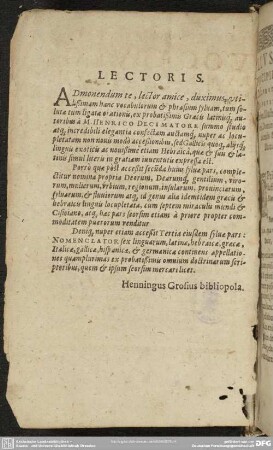 LECTORIS.
ADmonendum te, lector amice, duximus, utilissimam hanc vocabulorum & phrasium sylvam, tum solutæ tum ligatæ orationi, ex probatissimis Græcis latinisq; autoribus à M. HENRICO DECIMATORE summo studio
atq; incredibili elegantia confectam auctamq; nuper ac locupletatam non novis modò accessionibus, sed Gallicis quoq; alijsq;
linguis exoticis ac novissimè etiam Hebraicâ, quæ & suis & latinis simul literis in gratiam iuventutis expressa est.
Porrò quæ post accessit secunda huius sylvæ pars, complectitur nomina propria Deorum, Dearumq; gentilium, virorum, mulierum, urbium, regionum, insularum, promontiorum,
sylvarum, & fluviorum atq; id genus alia identidem græcis &
hebraicis linguis locupletata, cum septem miraculis mundi &
Cisiojano, atq; hæc pars seorsim etiam à priore propter commoditatem puerorum venditur.
Deniq; nuper etiam accessit Tertia eiusdem sylvæ pars:
NOMENCLATOR sex linguarum, latinæ, hebraicæ, græcæ,
Italicæ, gallicæ, hispanicæ, & germanicæ continens appellationes quamplurimas ex probatissimis omnium doctrinarum scriptoribus, quem & ipsum seorsim mercari licet.
Henningus Grosius bibliopola.